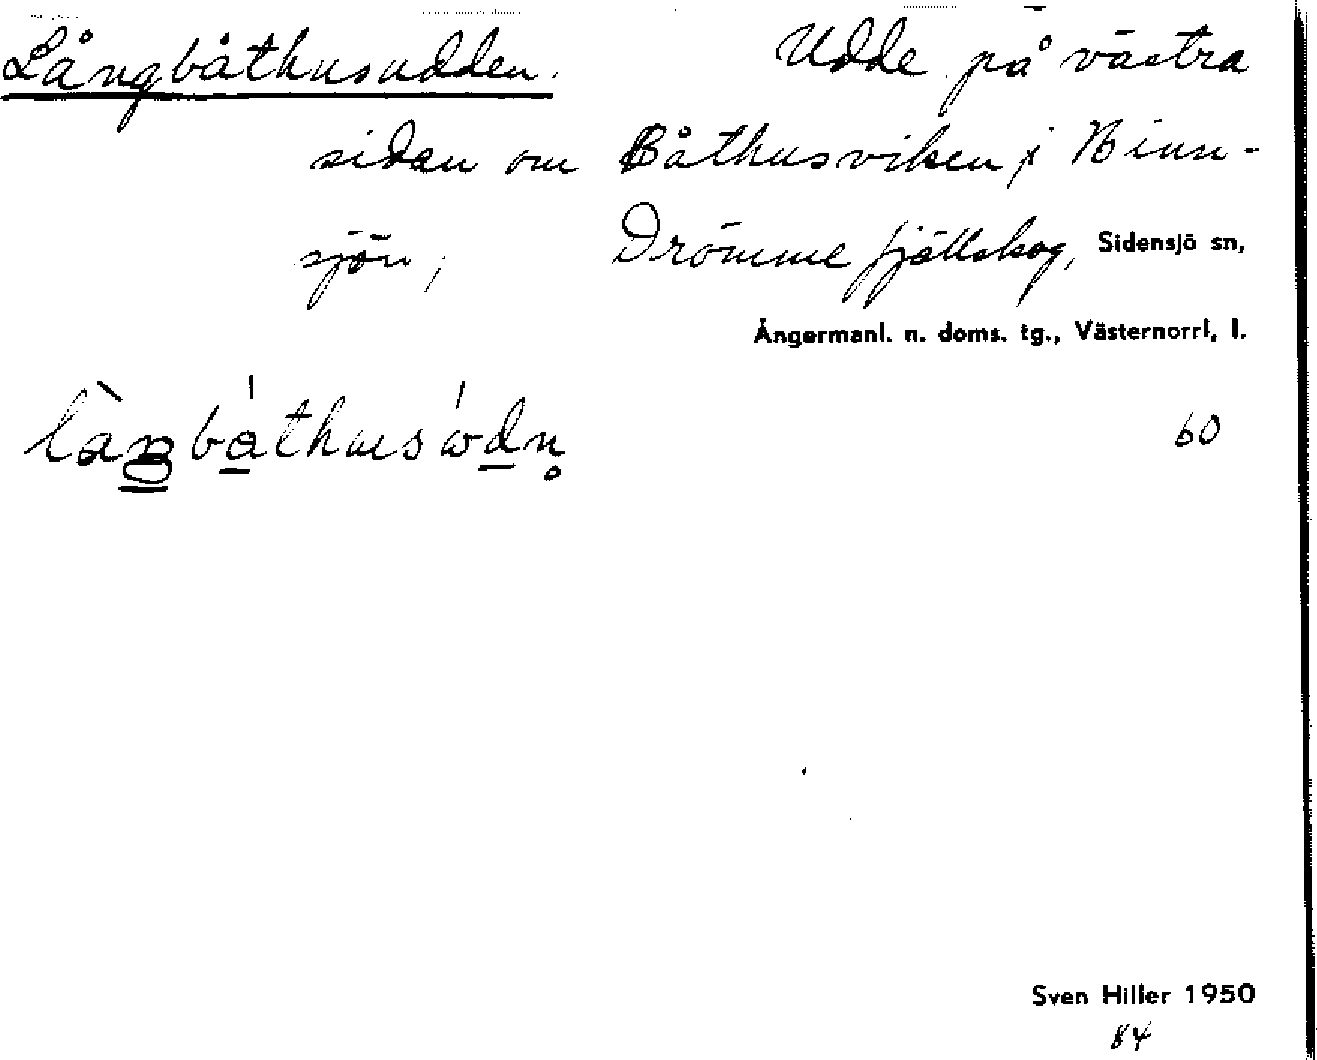 Långbåthusudden. Udde på västra
sidan om Båthusviken i Binn-
sjön, Drömme fjällskog, Sidensjö sn,
Ångermanl. n. doms. tg., Västernorrl. l.
60
Sven Hiller 1950
84